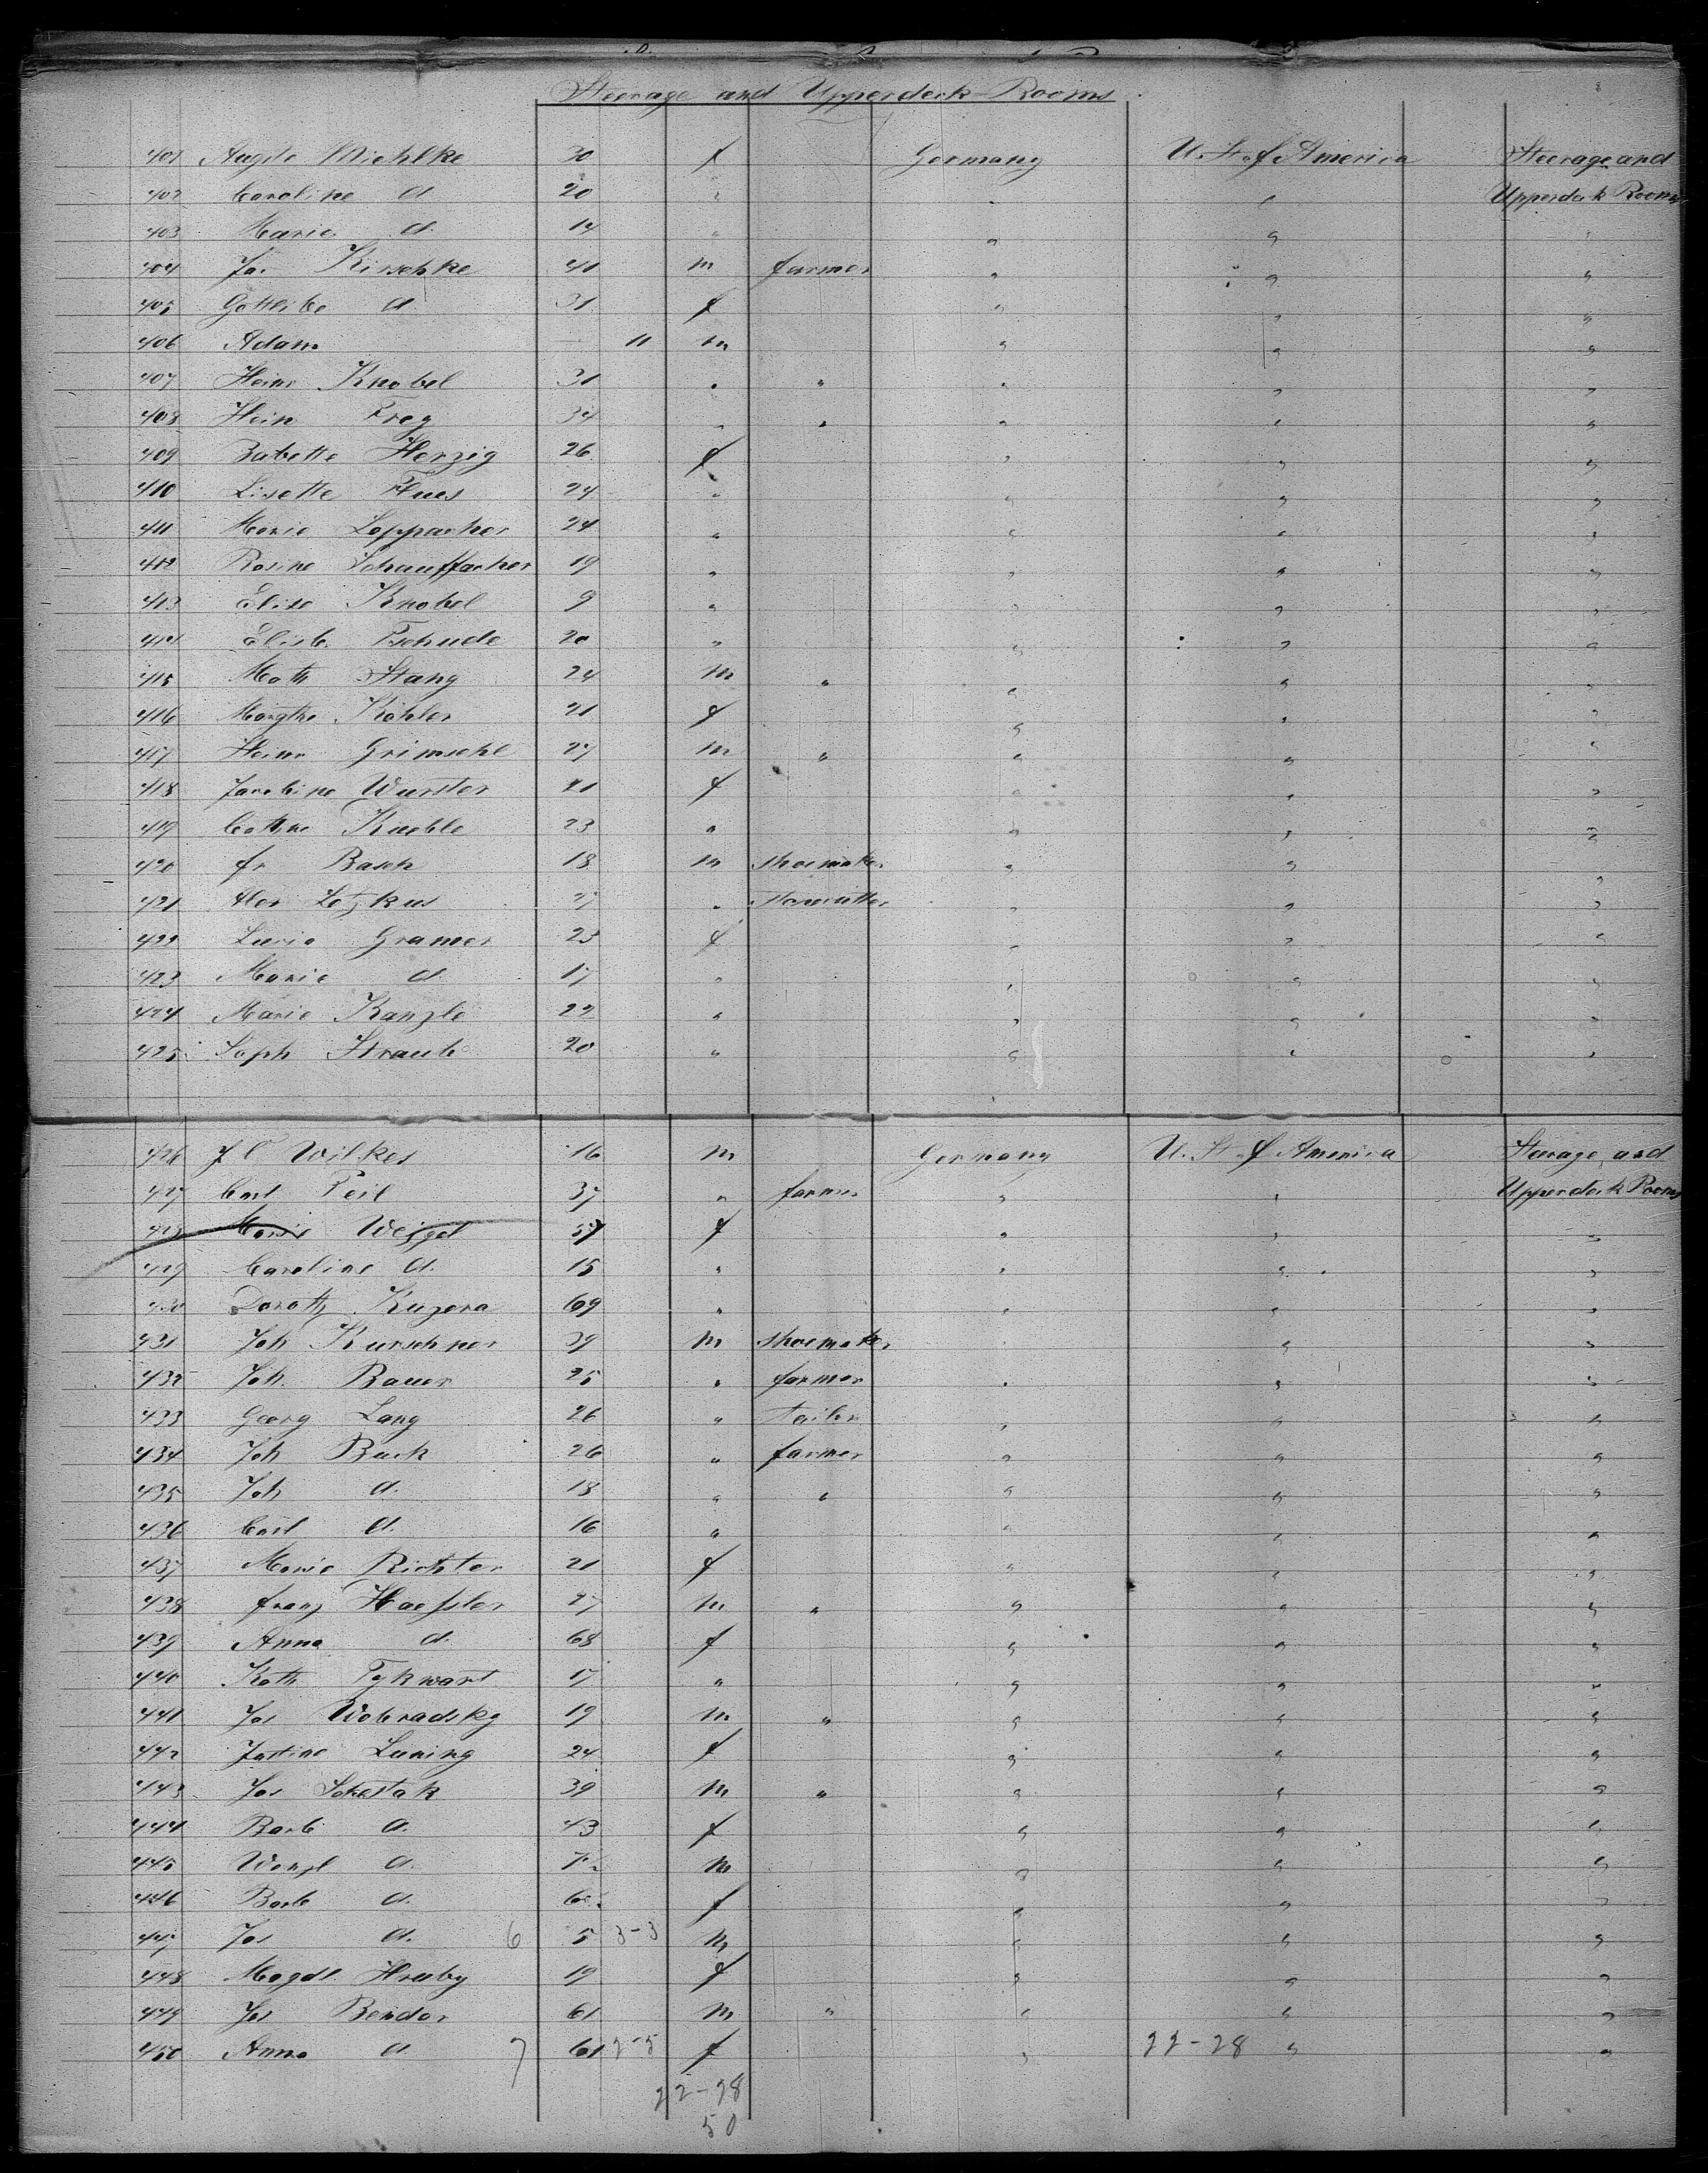 Steerage and Upperdeck Rooms
401 Augste Miehlke 30 f Germany U. St. of America Steerage and
402 Caroline d 20 " " " Upperdeck Rooms
403 Marie d. 14 " " " "
404 Jac Kirschke 41 m farmer " " "
405 Gottlibe d 31 f " " "
406 Adam 11 m " " "
407 Heinr Knobel 31 " " " " "
408 Hein Frey 34 " " " " "
409 Babette Herzig 26 f " " "
410 Lisette Flues 24 " " " "
411 Marie Loppacher 24 " " " "
412 Rosine Schauffacher 19 " " " "
413 Elise Knobel 9 " " " "
414 Elisb. Tschude 20 " " " "
415 Math Stang 24 m " " " "
416 Margthe Köhler 21 f " " "
417 Heinr Grimsehl 27 m " " " "
418 Jacobine Wurster 21 f " " "
419 Cathne Kuehle 23 " " " "
420 fr Basch 18 m shoemaker " " "
421 Alex Letzkus 27 " " " "
422 Lucia Gramer 25 f " " "
423 Marie d. 17 " " " "
424 Marie Kanzle 22 " " " "
425 Soph Straub 20 " " " "
426 J C Wilkes 16 m Germany U. St. of America Steerage and
427 Carl Feil 37 " farmer " " Upperdeck Rooms
428 Marie Weizel 37 f " " "
429 Caroline d. 15 " " " "
430 Doroth Kuzera 69 " " " "
431 Joh Kurschner 39 m shoemaker " " "
432 Joh. Bauer 25 " farmer " " "
433 Georg Lang 26 " tailor " " "
434 Joh Buck 26 " farmer " " "
435 Joh d. 18 " " " " "
436 Carl d. 16 " " " "
437 Marie Richter 21 f " " "
438 franz Haessler 27 m " " " "
439 Anna d. 68 f " " "
440 Kath Tykwart 17 " " " "
441 Jos Wobradsky 19 m " " " "
442 Justine Luning 24 f " " "
443 Jos Schestak 39 m " " " "
444 Barb d. 43 f " " "
445 Wenzl d. 7 m " " "
446 Barb d. 6 f " " "
447 Jos d. 6 5 3-3 m " " "
448 Magdl. Hruby 19 f " " "
449 Jos Bendar 61 m " " " "
450 Anna d 7 61 2-5 f " 22-28 " "
22-28
50